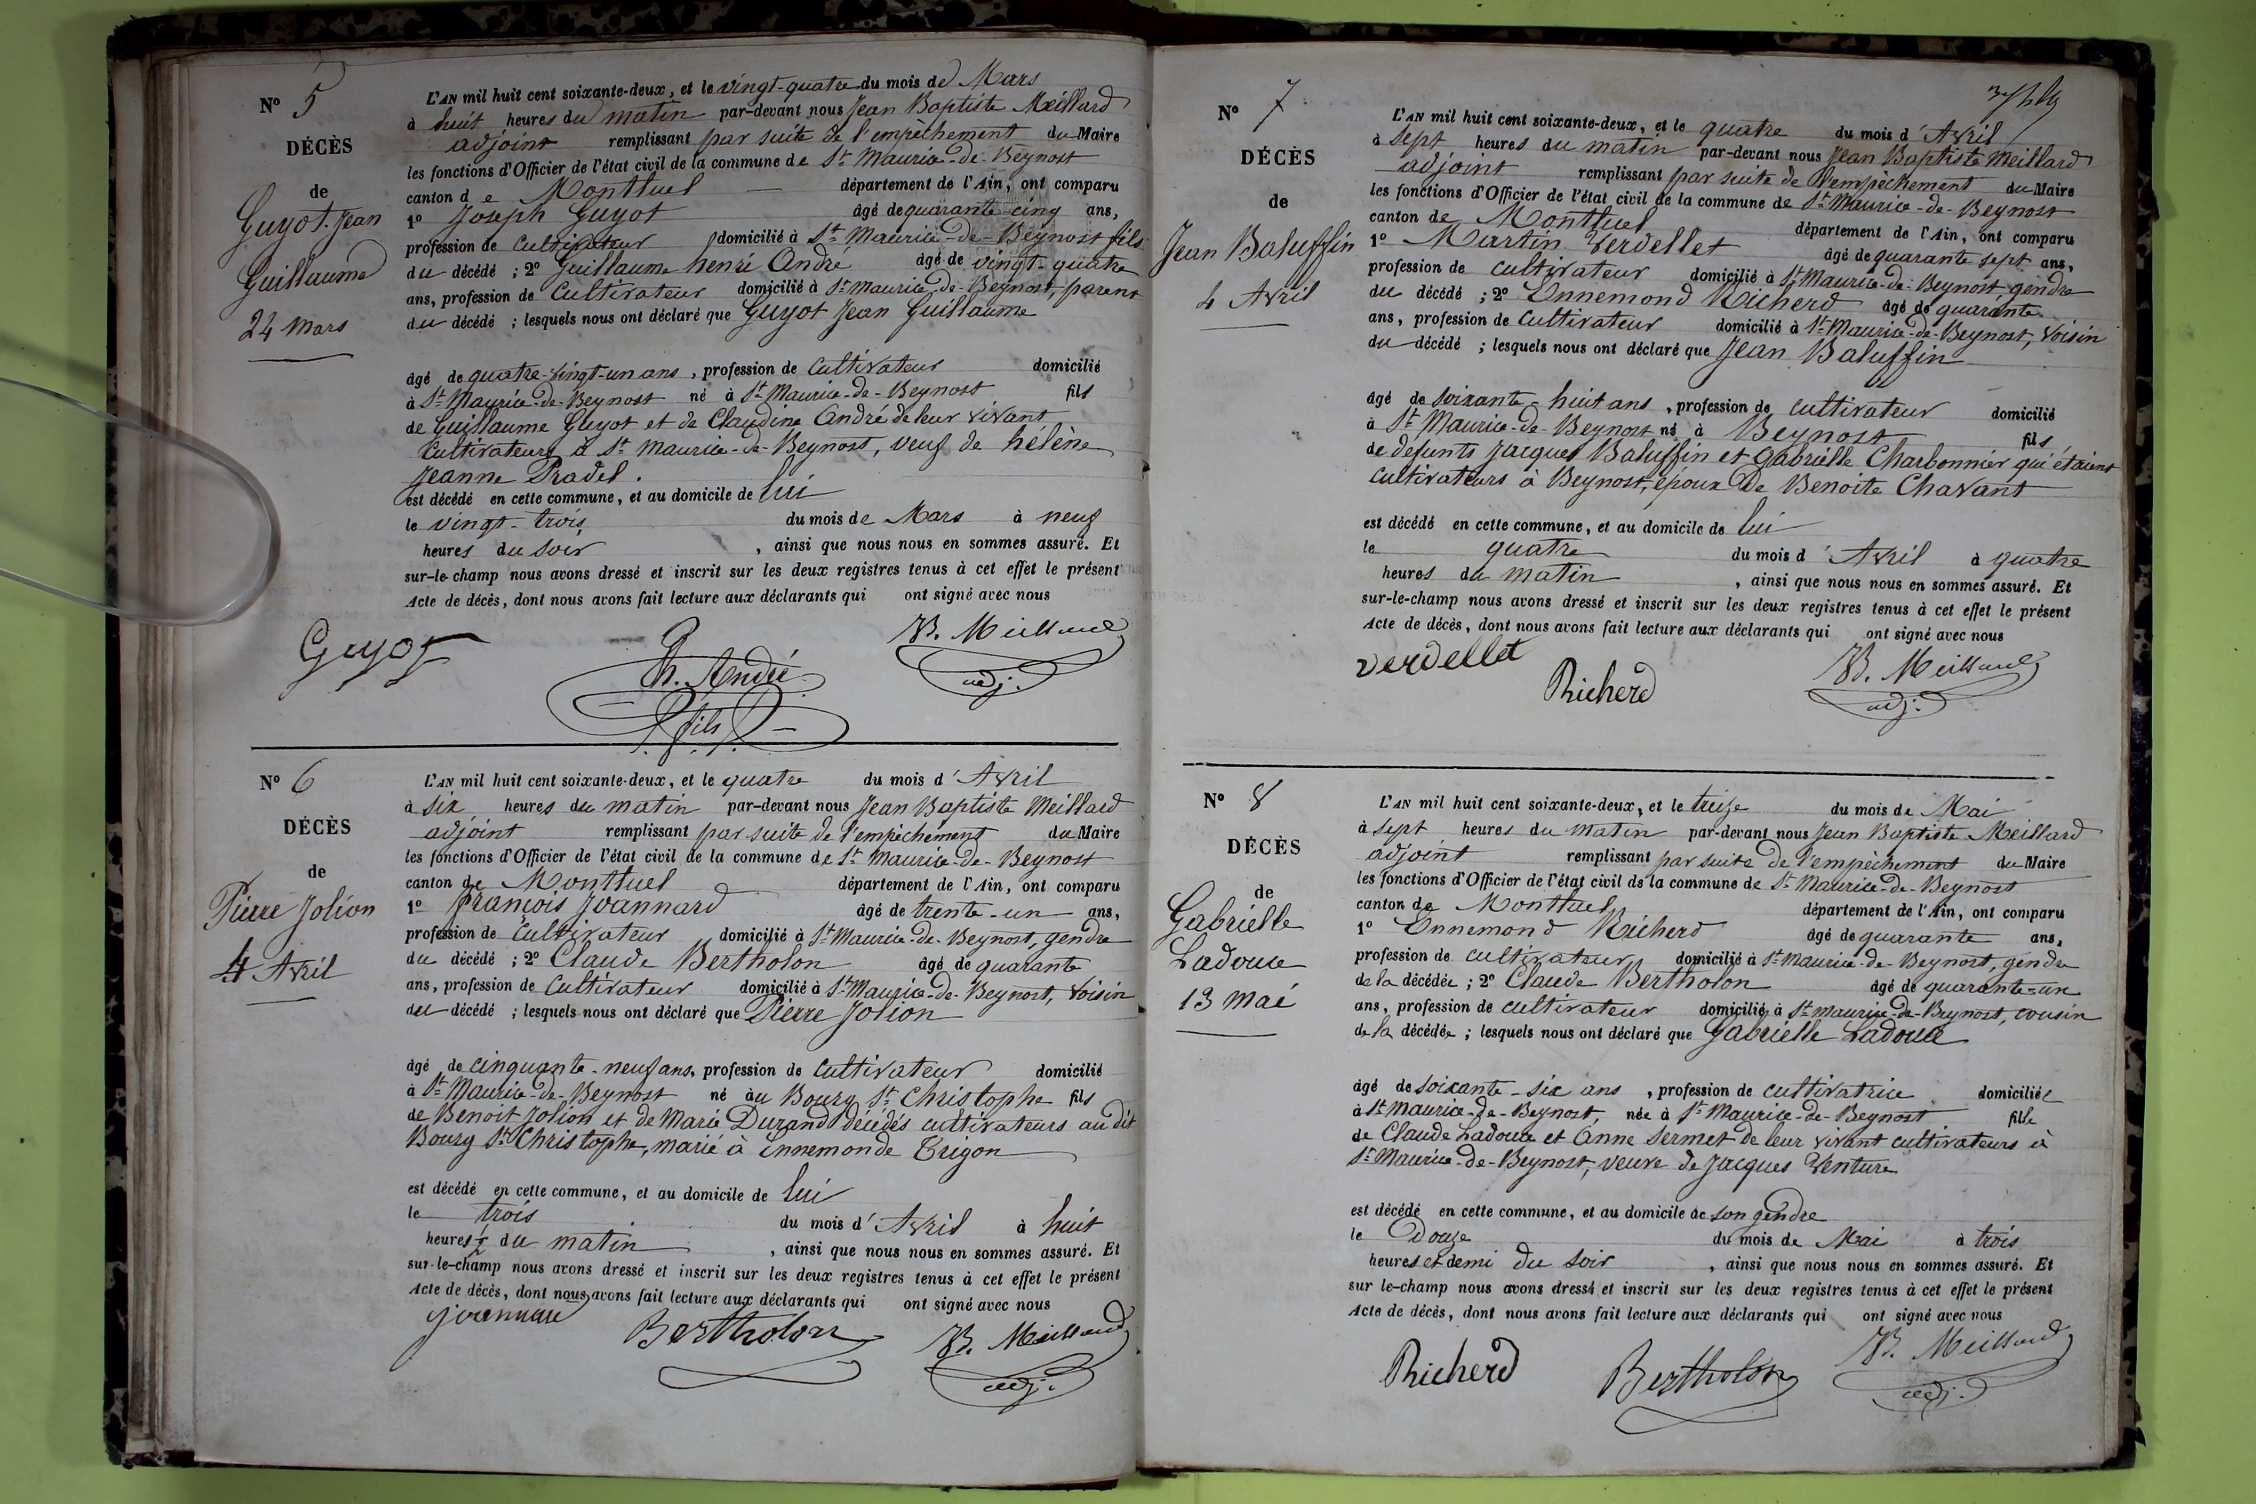 N° 5
DÉCÈS
de
Guyot Jean
Guillaume
24 mars
L'AN mil huit cent soixante-deux, et le vingt-quatre du mois de Mars
à huit heures du matin par-devant nous Jean Baptiste Meillard
adjoint remplissant par suite de l'empêchement du Maire
les fonctions d'Officier de l'état civil de la commune de St Maurice-de-Beynost
canton de Montluel département de l'Ain, ont comparu
1° Joseph Guyot âgé de quarante-cinq ans,
profession de cultivateur domicilié à St Maurice-de-Beynost fils
du décédé ; 2° Guillaume henri André âgé de vingt-quatre
ans, profession de cultivateur domicilié à St maurice-de-Beynost, parent
du décédé ; lesquels nous ont déclaré que Guyot Jean Guillaume
âgé de quatre-vingt-un ans, profession de cultivateur domicilié
à St Maurice-de-Beynost né à St Maurice-de-Beynost fils
de Guillaume Guyot et de Claudine André de leur vivant
cultivateurs à St maurice-de-Beynost, veuf de hélène
Jeanne Pradel.
est décédé en cette commune, et au domicile de lui
le vingt-trois du mois de Mars à neuf
heures du soir, ainsi que nous nous en sommes assuré. Et
sur-le-champ nous avons dressé et inscrit sur les deux registres tenus à cet effet le présent
Acte de décès, dont nous avons fait lecture aux déclarants qui ont signé avec nous
Guyot
h. André
fils
JB. Meillard
adj.
N° 6
DÉCÈS
de
Pierre Jolion
4 Avril
L'AN mil huit cent soixante-deux, et le quatre du mois d'Avril
à six heures du matin par-devant nous Jean Baptiste Meillard
adjoint remplissant par suite de l'empêchement du Maire
les fonctions d'Officier de l'état civil de la commune de St Maurice-de-Beynost
canton de Montluel département de l'Ain, ont comparu
1° François Joannard âgé de trente-un ans,
profession de cultivateur domicilié à St Maurice-de-Beynost, gendre
du décédé ; 2° Claude Bertholon âgé de quarante
ans, profession de cultivateur domicilié à St Maurice-de-Beynost, voisin
du décédé ; lesquels nous ont déclaré que Pierre Jolion
âgé de cinquante-neuf ans, profession de cultivateur domicilié
à St Maurice-de-Beynost né au Bourg St Christophe fils
de Benoit Jolion et de Marie Durand décédés cultivateurs au dit
Bourg St Christophe, marié à Ennemonde Trigon
est décédé en cette commune, et au domicile de lui
le trois du mois d'Avril à huit
heures ½ du matin, ainsi que nous nous en sommes assuré. Et
sur-le-champ nous avons dressé et inscrit sur les deux registres tenus à cet effet le présent
Acte de décès, dont nous avons fait lecture aux déclarants qui ont signé avec nous
Joannard
Bertholon
JB. Meillard
adj.
N° 7
DÉCÈS
de
Jean Baluffin
4 Avril
L'AN mil huit cent soixante-deux, et le quatre du mois d'Avril
à sept heures du matin par-devant nous Jean Baptiste Meillard
adjoint remplissant par suite de l'empêchement du Maire
les fonctions d'Officier de l'état civil de la commune de St Maurice-de-Beynost
canton de Montluel département de l'Ain, ont comparu
1° Martin Verdellet âgé de quarante sept ans,
profession de cultivateur domicilié à St Maurice-de-Beynost gendre
du décédé ; 2° Ennemond Richerd âgé de quarante
ans, profession de cultivateur domicilié à St Maurice-de-Beynost, voisin
du décédé ; lesquels nous ont déclaré que Jean Baluffin
âgé de soixante-huit ans, profession de cultivateur domicilié
à St Maurice-de-Beynost né à Beynost fils
de défunts Jacques Baluffin et Gabrielle Charbonnier qui étaient
cultivateurs à Beynost, époux de Benoite Chavant
est décédé en cette commune, et au domicile de lui
le quatre du mois d'Avril à quatre
heures du matin, ainsi que nous nous en sommes assuré. Et
sur-le-champ nous avons dressé et inscrit sur les deux registres tenus à cet effet le présent
Acte de décès, dont nous avons fait lecture aux déclarants qui ont signé avec nous
verdellet
Richerd
JB. Meillard
adj.
N° 8
DÉCÈS
de
Gabrielle
Ladouce
13 mai
L'AN mil huit cent soixante-deux, et le treize du mois de Mai
à sept heures du matin par-devant nous Jean Baptiste Meillard
adjoint remplissant par suite de l'empêchement du Maire
les fonctions d'Officier de l'état civil de la commune de St Maurice-de-Beynost
canton de Montluel département de l'Ain, ont comparu
1° Ennemond Richerd âgé de quarante ans,
profession de cultivateur domicilié à St Maurice-de-Beynost, gendre
de la décédée ; 2° Claude Bertholon âgé de quarante-un
ans, profession de cultivateur domicilié à St maurice-de-Beynost, cousin
de la décédée ; lesquels nous ont déclaré que Gabrielle Ladouce
âgé de soixante-six ans, profession de cultivatrice domiciliée
à St Maurice-de-Beynost, née à St Maurice-de-Beynost fille
de Claude Ladouce et Anne Sermet de leur vivant cultivateurs à
St Maurice-de-Beynost, veuve de Jacques Venture
est décédé en cette commune, et au domicile de son gendre
le Douze du mois de Mai à trois
heures et demi du soir, ainsi que nous nous en sommes assuré. Et
sur le-champ nous avons dressé et inscrit sur les deux registres tenus à cet effet le présent
Acte de décès, dont nous avons fait lecture aux déclarants qui ont signé avec nous
Richerd
Bertholon
JB. Meillard
adj.